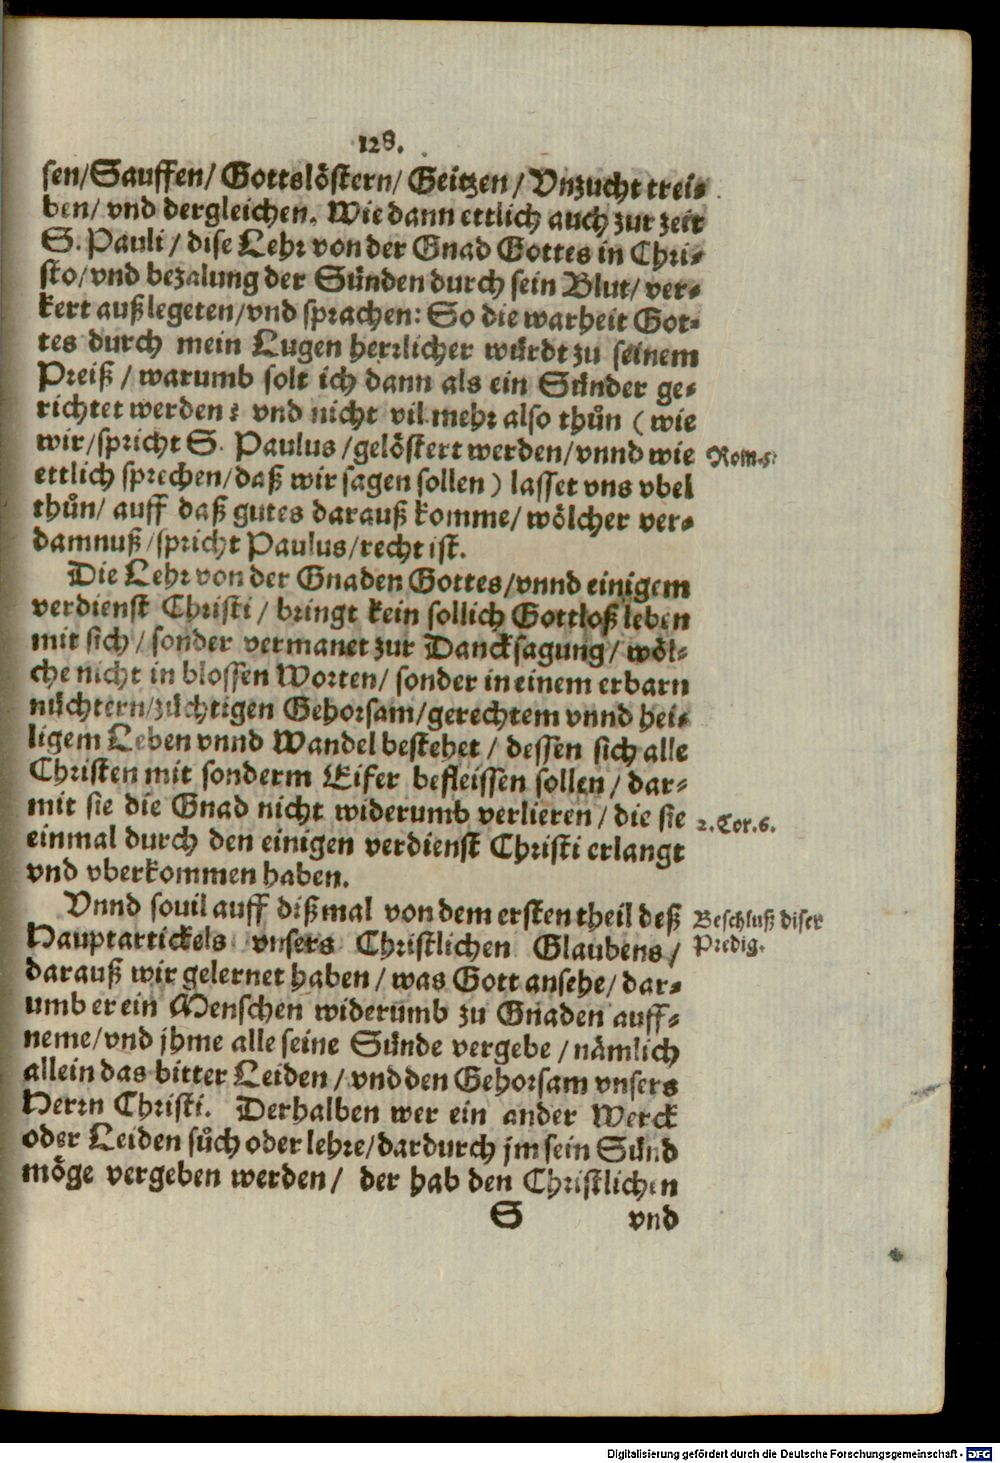 128.
sen/Sauffen/ Gottslöstern/ Geitzen/ Vnzucht trei-
ben/ vnd dergleichen. Wie dann ettlich auch zur zeit
S. Pauli/ dise Lehr von der Gnad Gottes in Chri-
sto/ vnd bezalung der Sünden durch sein Blut/ ver-
kert außlegeten/ vnd sprachen: So die warheit Got-
tes durch mein Lugen herrlicher würdt zu seinem
Preiß/ warumb solt ich dann als ein Sünder ge-
richtet werden? vnd nicht vil mehr also thůn (wie
wir/ spricht S. Paulus/ gelöstert werden/ vnnd wie
Rom.
ettlich sprechen/ daß wir sagen sollen) lasset vns vbel
thůn/ auff daß gutes darauß komme/ wölcher ver-
damnuß/ spricht Paulus/ recht ist.
Die Lehr von der Gnaden Gottes/ vnnd einigem
verdienst Christi/ bringt kein sollich Gottloß leben
mit sich/ sonder vermanet zur Dancksagung/ wöl-
che nicht in blossen Worten/ sonder in einem erbarn
nüchtern/ züchtigen Gehorsam/ gerechtem vnnd hei-
ligem Leben vnnd Wandel bestehet/ dessen sich alle
Christen mit sonderm Eifer befleissen sollen/ dar-
mit sie die Gnad nicht widerumb verlieren/ die sie
2. Cor. 6.
einmal durch den einigen verdienst Christi erlangt
vnd vberkommen haben.
Vnnd souil auff dißmal von dem ersten theil deß
Beschluß diser
Predig.
Hauptartickels vnsers Christlichen Glaubens/
darauß wir gelernet haben/ was Gott ansehe/ dar-
umb er ein Menschen widerumb zu Gnaden auff-
neme/ vnd jhme alle seine Sünde vergebe/ nämlich
allein das bitter Leiden/ vnd den Gehorsam vnsers
Herrn Christi. Derhalben wer ein ander Werck
oder Leiden sůch oder lehre/ dardurch jm sein Sünd
möge vergeben werden/ der hab den Christlichen
S vnd
Digitalisierung gefördert durch die Deutsche Forschungsgemeinschaft - DFG